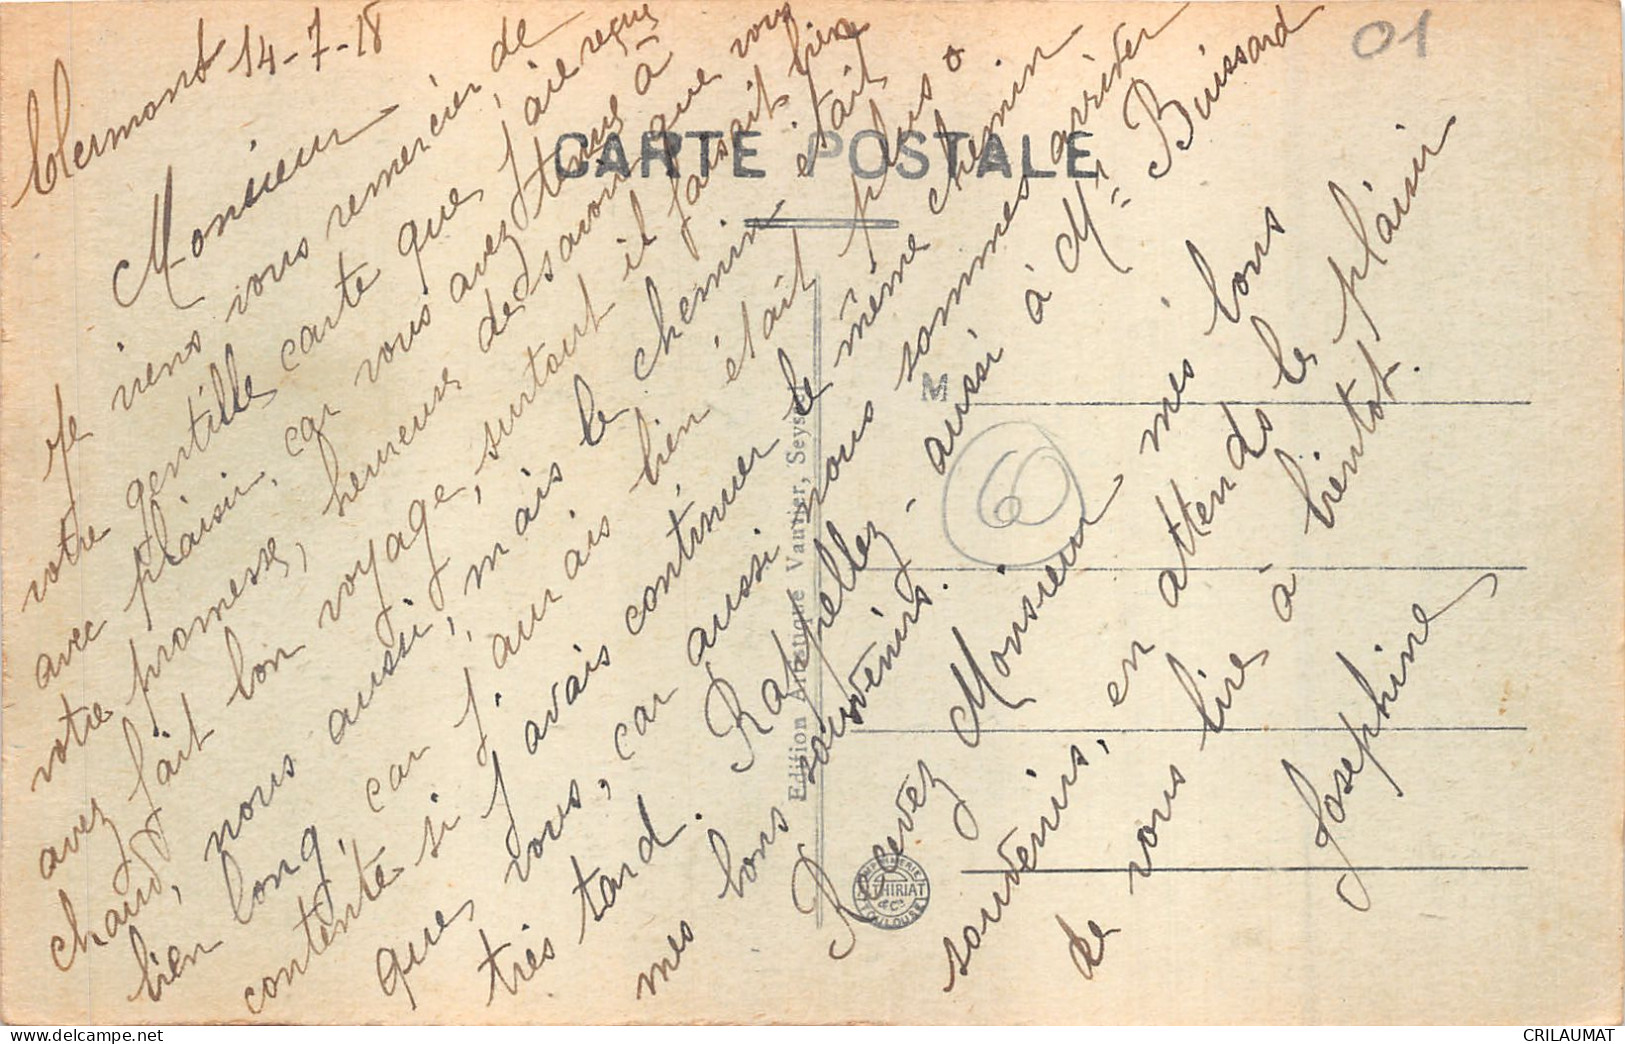 Clermont 14-7-18
Monsieur
Je viens vous remercier, de
votre gentille carte que j'aie reçue
avec plaisir, car vous avez tenus à
votre promesse, heureuse de savoir que vous
avez fait bon voyage, surtout il faisait bien
chaud, nous aussi, mais le chemin était
bien long, car j'aurais bien était plus
contente si j'avais continuer le même chemin
que vous, car aussi nous sommes arriver
très tard. Rappellez-aussi à Mr Buissard
mes bons souvenirs.
Recevez Monsieur mes bons
souvenirs, en attends le plaisir
de vous lire à bientot.
Josephine
CARTE POSTALE
M
Edition Artistique Vautier, Seyssel
IMPRIMERIE
THIRIAT
& Cie
TOULOUSE
01
60
CRILAUMAT